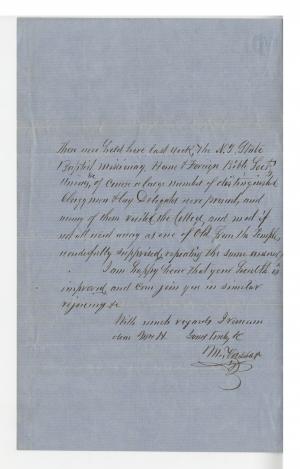 There was held here last week, the N.Y. State
Baptist Missionary Home & Foreign Bible Socy
Union, &c, of course a large number of distinguished
Clergymen & Lay Delegates were present, and
many of them visited the College, and most if
not all went away as one of Old from the Temple,
wonderfully surprised, repeating the same
I am happy hear that your health is
improved, and can join you in similar
rejoicing &c
With much regards I remain
dear Mr H. Yours truly &c
M. Vassar